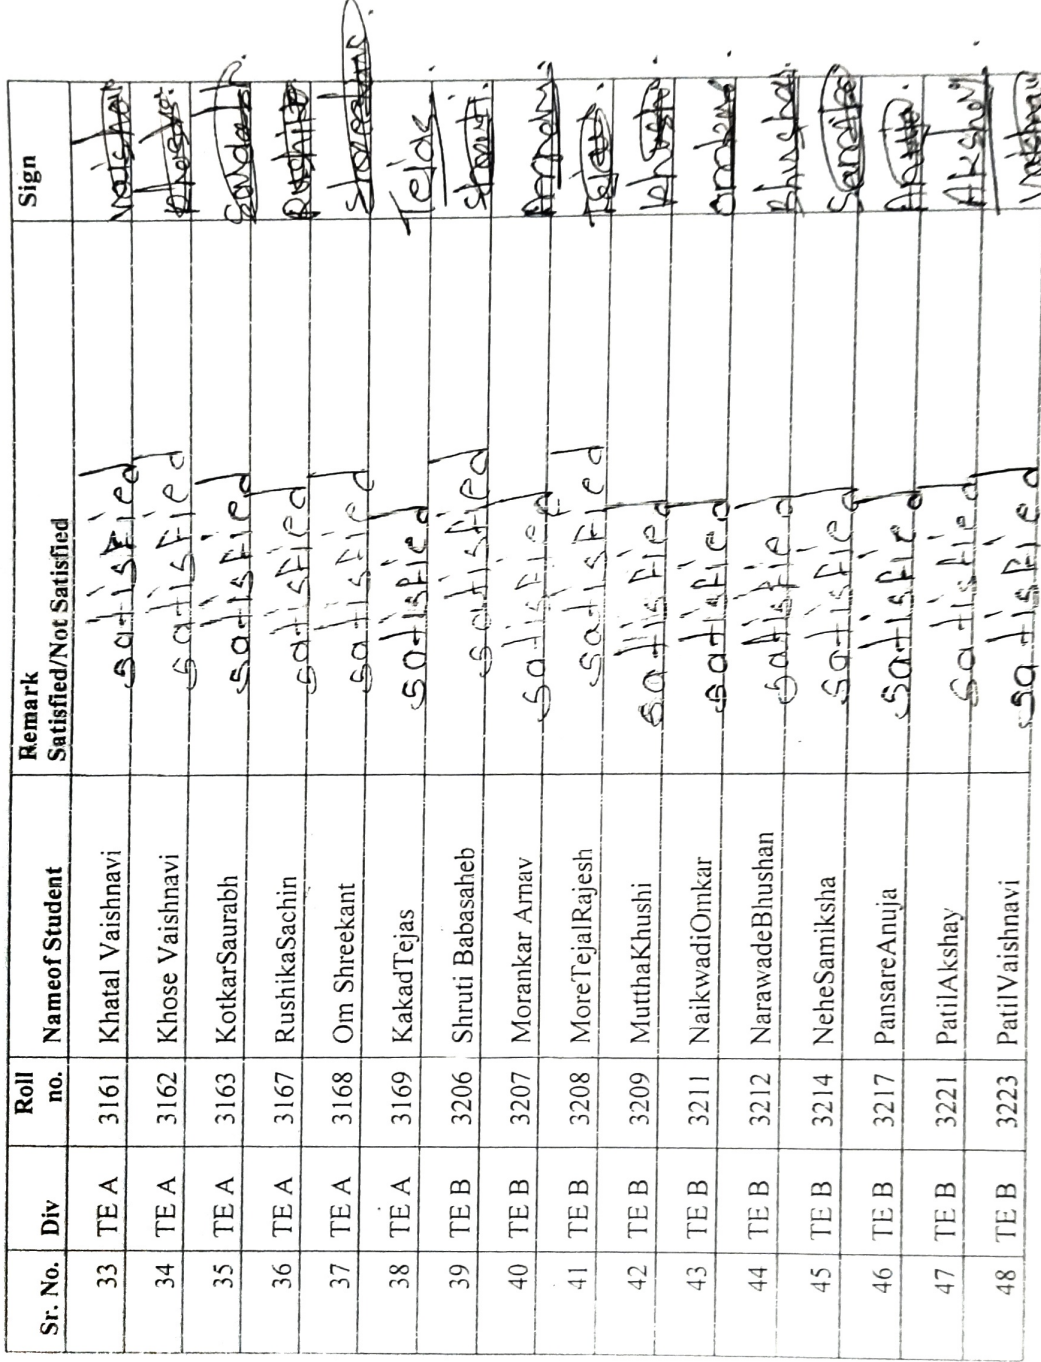 Sr. No. Div Roll no. Nameof Student Remark Satisfied/Not Satisfied Sign
33 TE A 3161 Khatal Vaishnavi satisfied
34 TE A 3162 Khose Vaishnavi satisfied
35 TE A 3163 KotkarSaurabh satisfied
36 TE A 3167 RushikaSachin satisfied
37 TE A 3168 Om Shreekant satisfied
38 TE A 3169 KakadTejas satisfied Tejas
39 TE B 3206 Shruti Babasaheb satisfied
40 TE B 3207 Morankar Arnav satisfied
41 TE B 3208 MoreTejalRajesh satisfied
42 TE B 3209 MutthaKhushi satisfied
43 TE B 3211 NaikwadiOmkar satisfied
44 TE B 3212 NarawadeBhushan satisfied Bhushan
45 TE B 3214 NeheSamiksha satisfied
46 TE B 3217 PansareAnuja satisfied
47 TE B 3221 PatilAkshay satisfied Akshay
48 TE B 3223 PatilVaishnavi satisfied